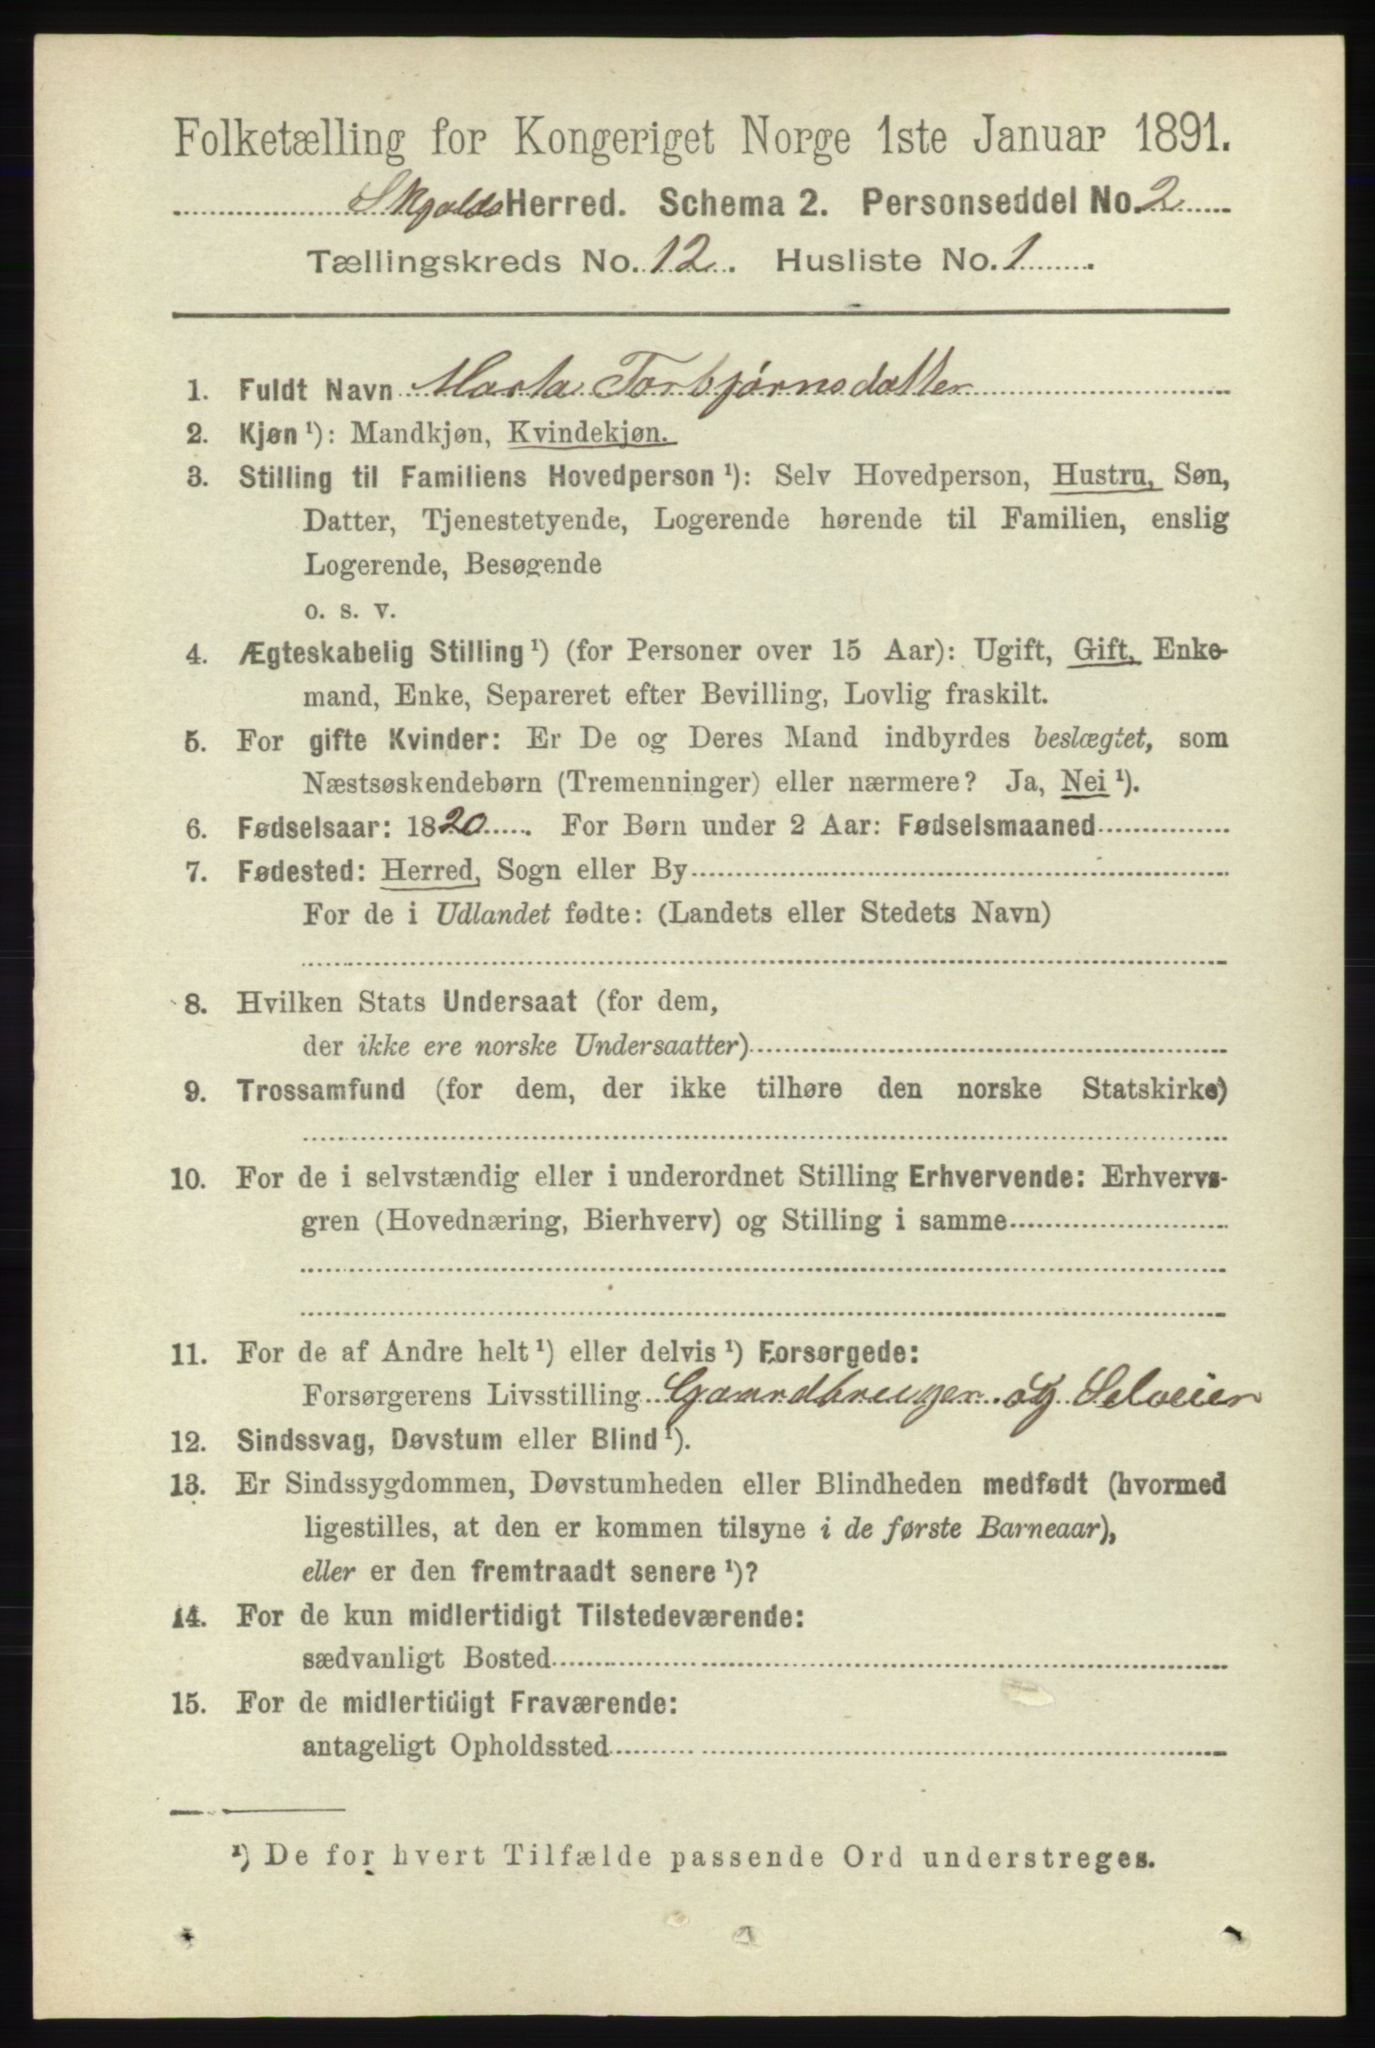 Folketælling for Kongeriget Norge 1ste Januar 1891.
Skjolds Herred. Schema 2. Personseddel No. 2
Tællingskreds No. 12. Husliste No. 1.
1. Fuldt Navn Marta Torbjørnsdatter
2. Kjøn ¹): Mandkjøn, Kvindekjøn.
3. Stilling til Familiens Hovedperson ¹): Selv Hovedperson, Hustru, Søn,
Datter, Tjenestetyende, Logerende hørende til Familien, enslig
Logerende, Besøgende
o. s. v.
4. Ægteskabelig Stilling ¹) (for Personer over 15 Aar): Ugift, Gift, Enke-
mand, Enke, Separeret efter Bevilling, Lovlig fraskilt.
5. For gifte Kvinder: Er De og Deres Mand indbyrdes beslægtet, som
Næstsøskendebørn (Tremenninger) eller nærmere? Ja, Nei ¹).
6. Fødselsaar: 1820. For Børn under 2 Aar: Fødselsmaaned
7. Fødested: Herred, Sogn eller By
For de i Udlandet fødte: (Landets eller Stedets Navn)
8. Hvilken Stats Undersaat (for dem,
der ikke ere norske Undersaatter)
9. Trossamfund (for dem, der ikke tilhøre den norske Statskirke)
10. For de i selvstændig eller i underordnet Stilling Erhvervende: Erhvervs-
gren (Hovednæring, Bierhverv) og Stilling i samme
11. For de af Andre helt ¹) eller delvis ¹) Forsørgede:
Forsørgerens Livsstilling Gaardbruger og Selveier
12. Sindssvag, Døvstum eller Blind ¹).
13. Er Sindssygdommen, Døvstumheden eller Blindheden medfødt (hvormed
ligestilles, at den er kommen tilsyne i de første Barneaar),
eller er den fremtraadt senere ¹)?
14. For de kun midlertidigt Tilstedeværende:
sædvanligt Bosted
15. For de midlertidigt Fraværende:
antageligt Opholdssted
¹) De for hvert Tilfælde passende Ord understreges.